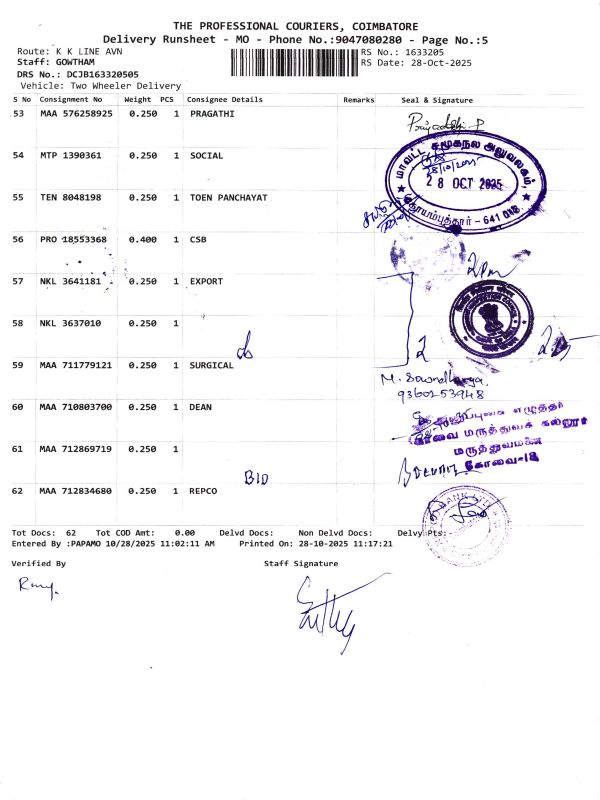 THE PROFESSIONAL COURIERS, COIMBATORE
Delivery Runsheet - MO - Phone No.:9047080280 - Page No.:5
Route: K K LINE AVN
RS No.: 1633205
Staff: GOWTHAM
RS Date: 28-Oct-2025
DRS No.: DCJB163320505
Vehicle: Two Wheeler Delivery
S No Consignment No Weight PCS Consignee Details Remarks Seal & Signature
53 MAA 576258925 0.250 1 PRAGATHI
54 MTP 1390361 0.250 1 SOCIAL
மாவட்ட சமூகநல அலுவலகம்,
28/10/2025
28 OCT 2025
கோயம்புத்தூர் - 641 018.
55 TEN 8048198 0.250 1 TOEN PANCHAYAT
56 PRO 18553368 0.400 1 CSB
2pm
57 NKL 3641181 0.250 1 EXPORT
58 NKL 3637010 0.250 1
2
59 MAA 711779121 0.250 1 SURGICAL
M. Sowndharya.
9360253948
60 MAA 710803700 0.250 1 DEAN
எழுத்தர்
கோவை மருத்துவக் கல்லூரி
மருத்துவமனை
கோவை-18
61 MAA 712869719 0.250 1
BID
62 MAA 712834680 0.250 1 REPCO
Tot Docs: 62 Tot COD Amt: 0.00 Delvd Docs: Non Delvd Docs: Delvy Pts:
Entered By :PAPAMO 10/28/2025 11:02:11 AM Printed On: 28-10-2025 11:17:21
Verified By Staff Signature